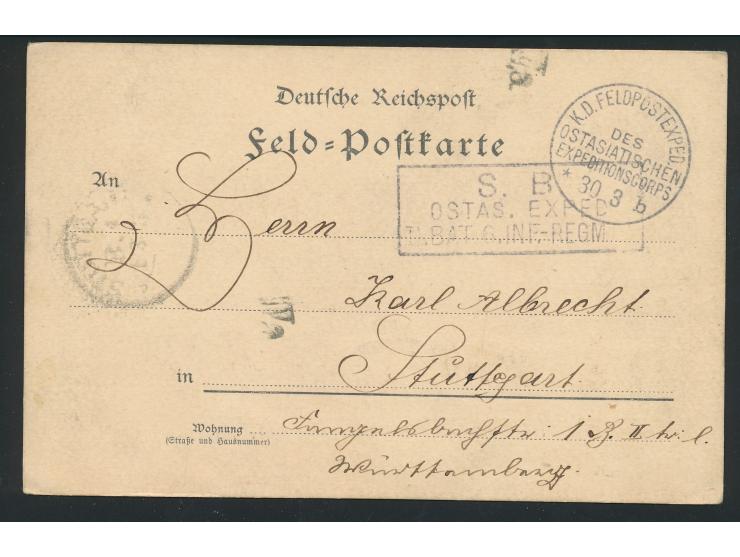 Deutsche Reichspost
Feld-Postkarte
K.D. FELDPOSTEXPED.
DES
OSTASIATISCHEN
EXPEDITIONSCORPS
* 30 3 b
S. B
OSTAS. EXPED
BAT. 6. INF.-REGM
An
Herrn
Karl Albrecht
in Stuttgart
Wohnung
(Straße und Hausnummer)
1 B. II tr. l.
Württemberg